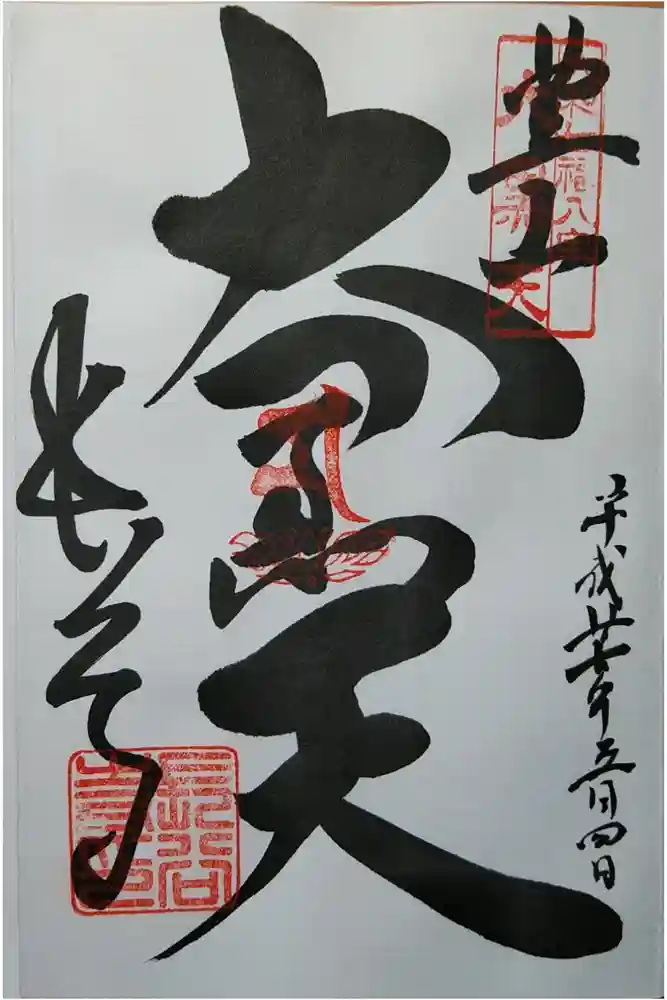 豊山
大黒天
平成廿七年五月四日
長谷寺